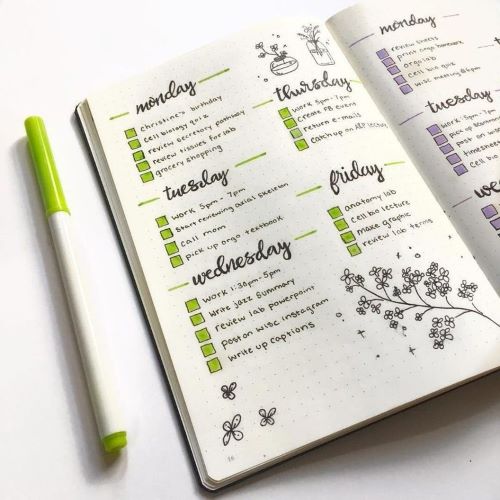 monday
christine's birthday
cell biology quiz
review secretory pathway
review tissues for lab
grocery shopping
tuesday
work 5pm - 7pm
start reviewing axial skeleton
call mom
pick up orgo textbook
wednesday
work 1:30pm-5pm
write jazz summary
review lab powerpoint
post on wisc instagram
write up captions
thursday
work 5pm-7pm
create FB event
return e-mails
catch up on A&P lecture
friday
anatomy lab
cell bio lecture
make graphic
review lab terms
16
monday
review sheets
print orgo homework
orgo lab
cell bio quiz
wisc meeting @6pm
tuesday
work 5pm
pick up
post on
timesheet
cell bio